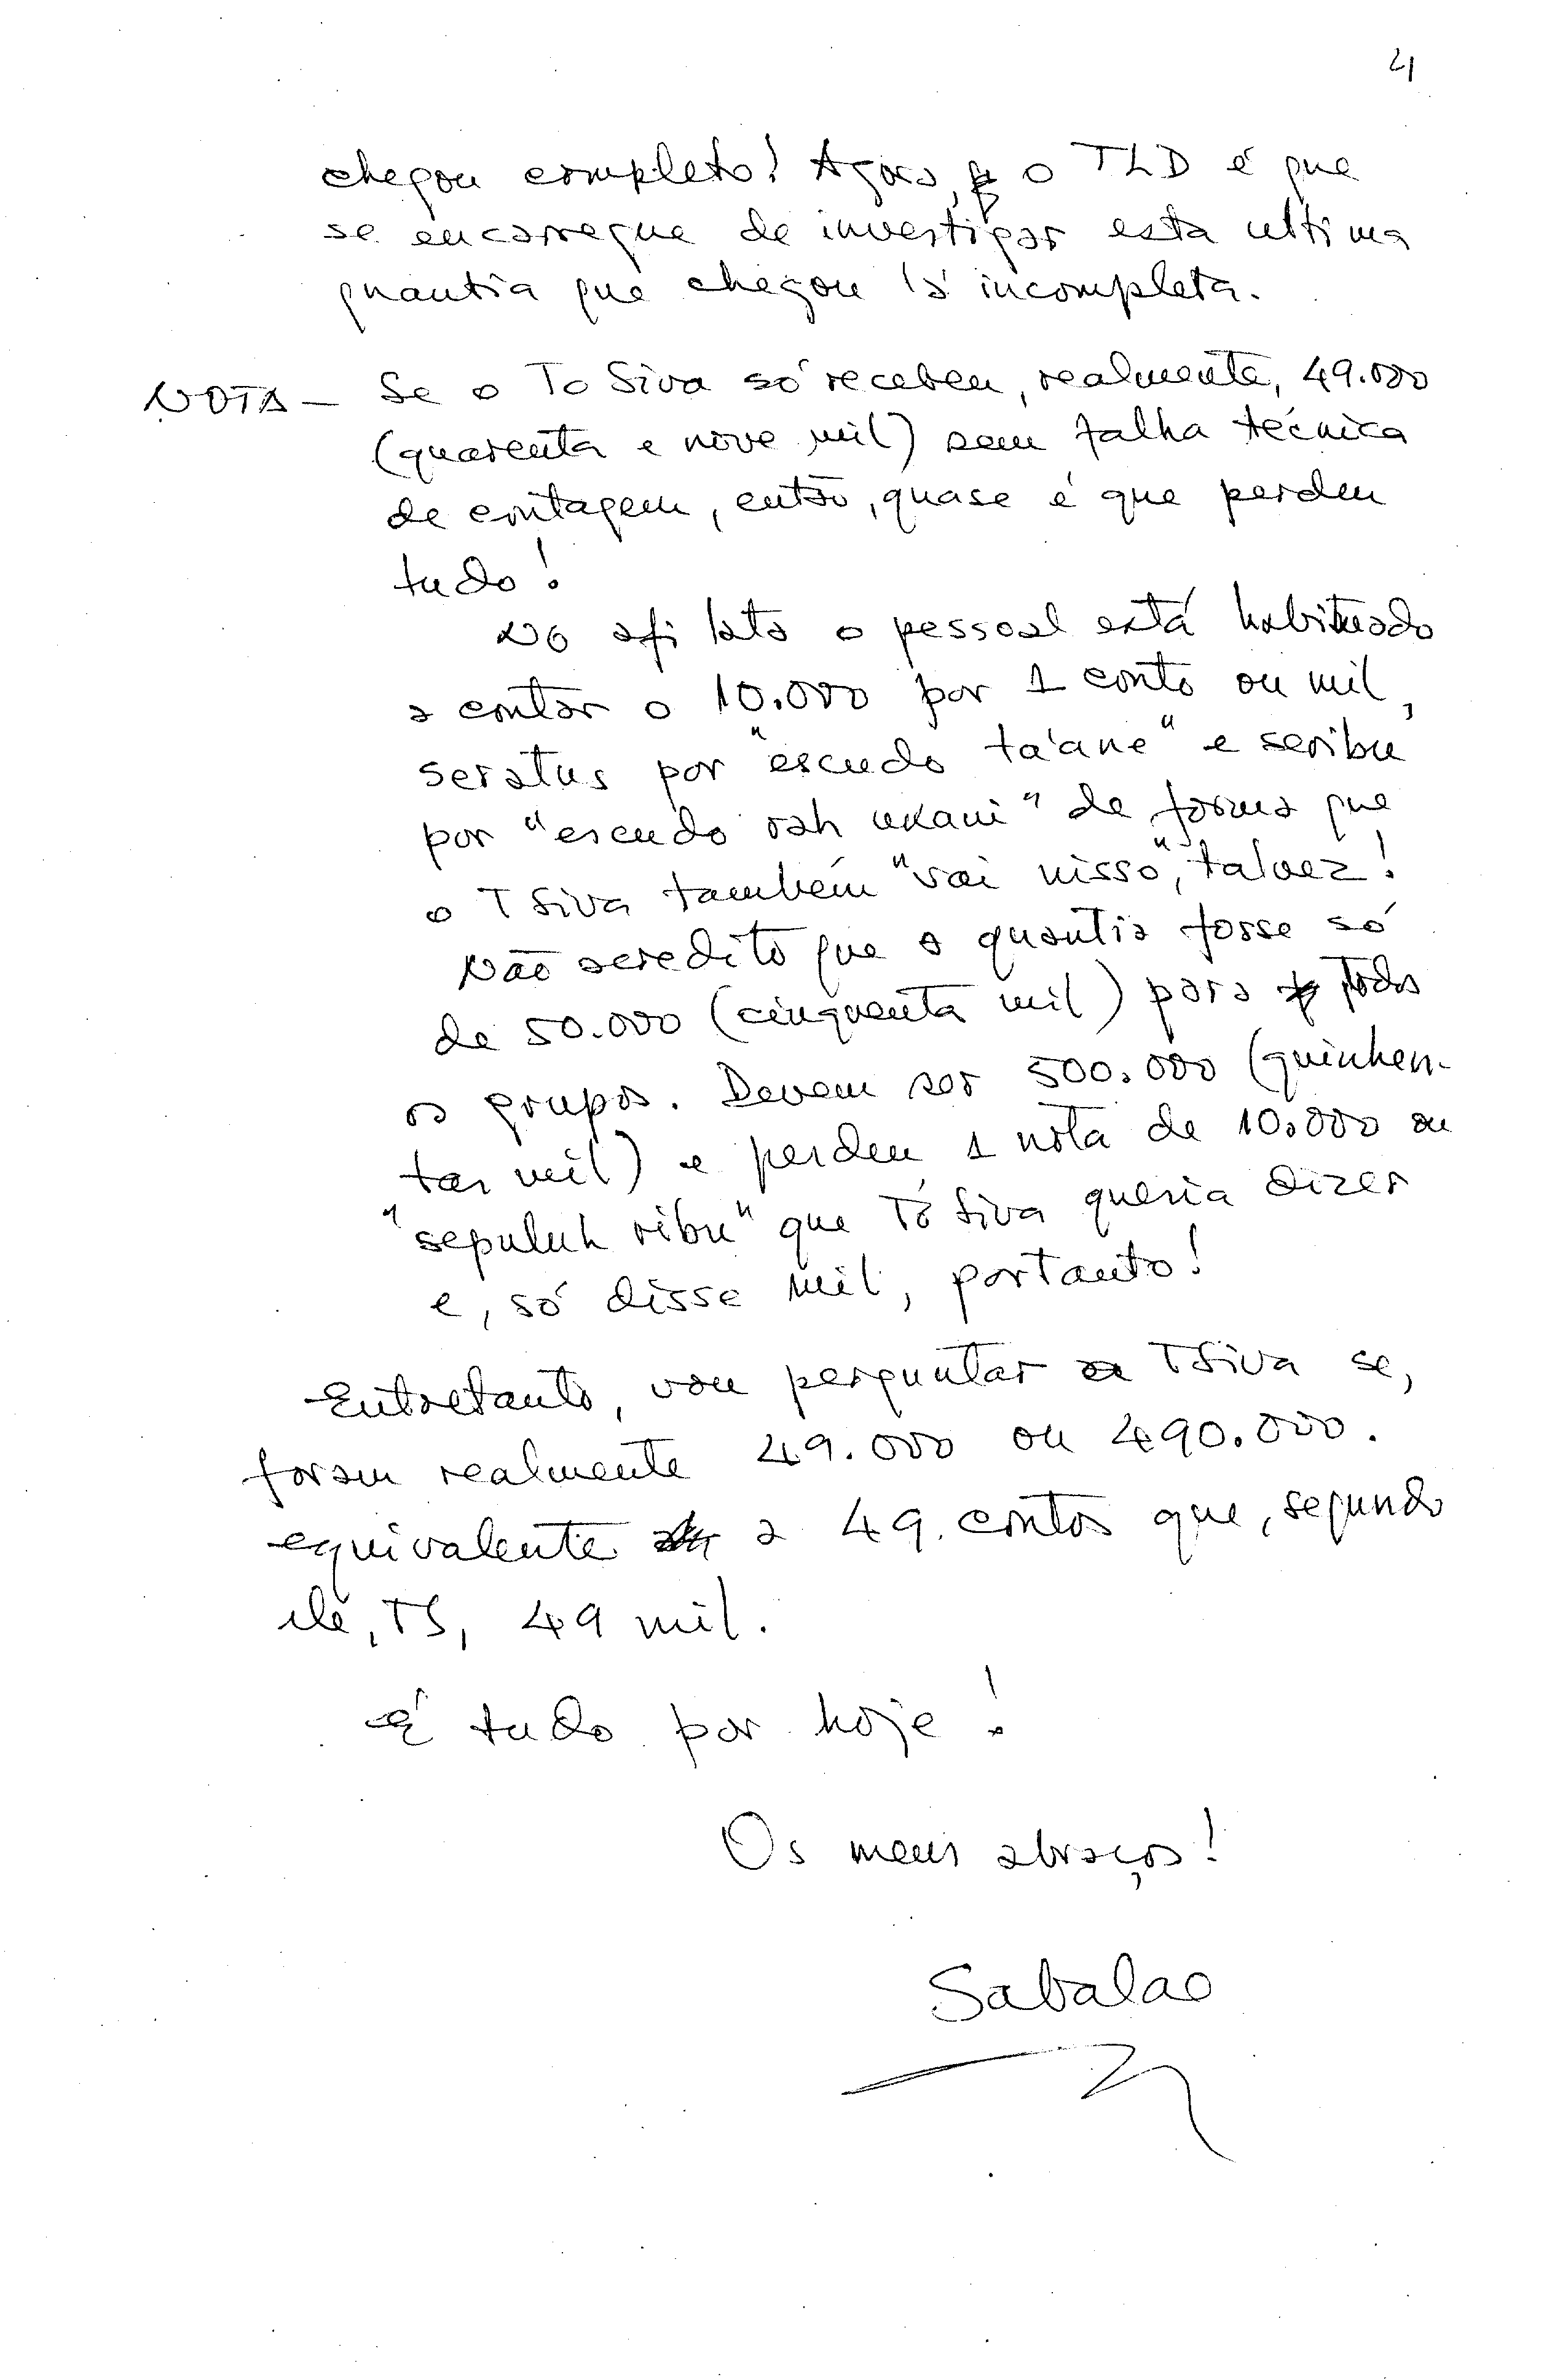 4
chegou completo! Agora, o TLD é que
se encarregue de investigar esta ultima
quantia que chegou lá incompleta.
NOTA — Se o To Siva só recebeu, realmente, 49.000
(quarenta e nove mil) sem falha técnica
de contagem, então, quase é que perdeu
tudo!
No o pessoal está habituado
a contar o 10.000 por 1 conto ou mil,
seratus por "escudo ta'ane" e seribu
por "escudo " de forma que
o TSiva também "vai nisso", talvez!
Não acredito que a quantia fosse só
de 50.000 (cinquenta mil) para todos
os grupos. Devem ser 500.000 (quinhen-
tas mil) e perdeu 1 nota de 10.000 ou
"sepuluh ribu" que Tó Siva queria dizer
e, só disse mil, portanto!
Entretanto, vou perguntar a TSiva se,
foram realmente 49.000 ou 490.000.
equivalente a 49. contos que, segundo
ele, TS, 49 mil.
É tudo por hoje!
Os meus abraços!
Sabalae